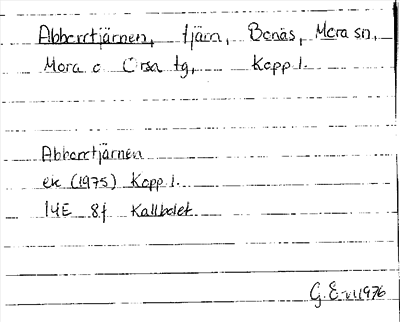 Abborrtjärnen, tjärn, Bonäs, Mora sn,
Mora o Orsa tg, Kopp l.
Abborrtjärnen
ek (1975) Kopp l.
14E 8f Kallbolet
G. E-n 1976